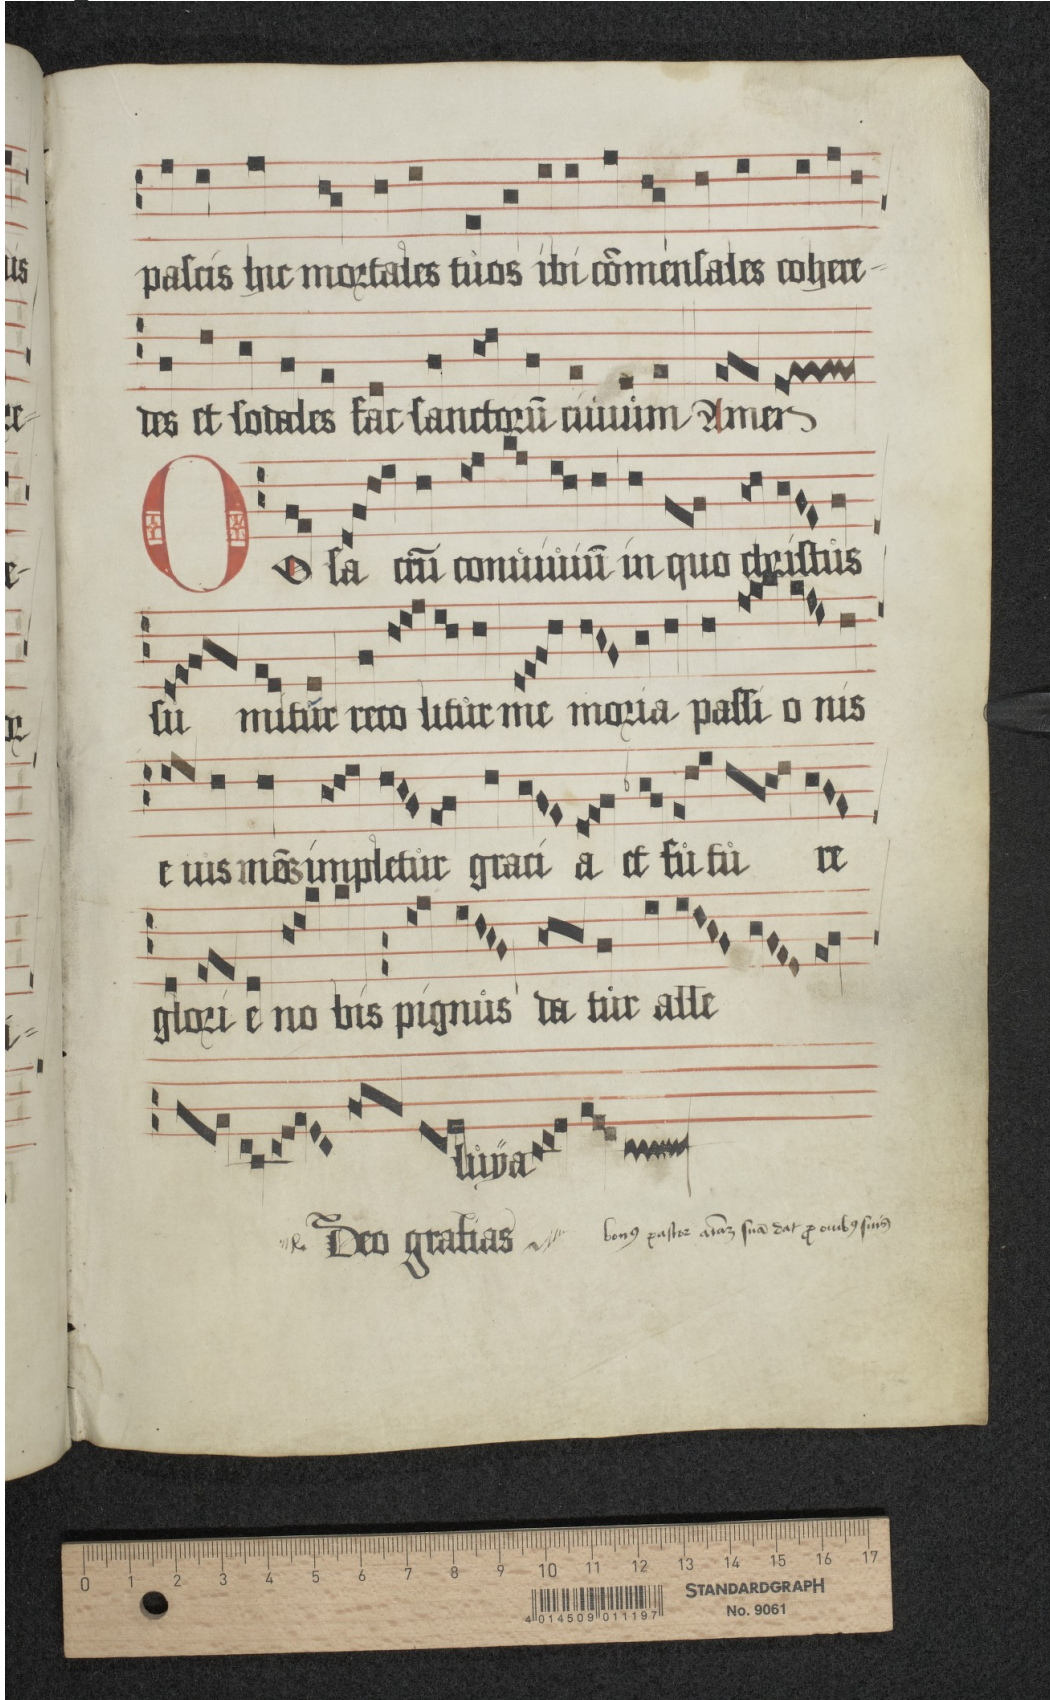 pascis hic mortales tuos ibi cōmensales cohere-
des et sodales fac sanctorū ciuium Amen
O sa crū conuiuiū in quo christus
su mitur reco litur me moria passi o nis
e ius mēs impletur graci a et futu re
glori e no bis pignus da tur alle
luya
Deo gratias
bonꝰ pastor aīaꝫ suā dat ꝓ ouibꝰ suis
0 1 2 3 4 5 6 7 8 9 10 11 12 13 14 15 16 17
4 014509 011197
STANDARDGRAPH
No. 9061